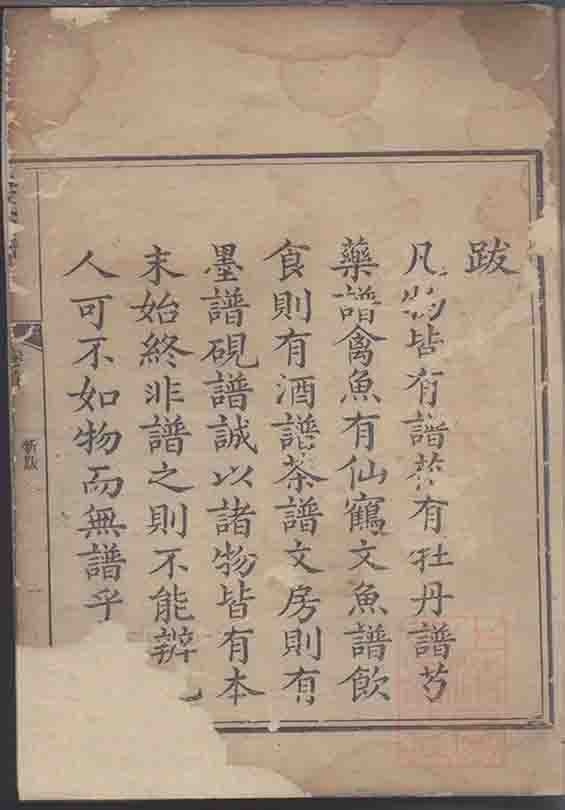 跋
凡物皆有譜花有牡丹譜芍
藥譜禽魚有仙鶴文魚譜飲
食則有酒譜茶譜文房則有
墨譜硯譜誠以諸物皆有本
末始終非譜之則不能辨
人可不如物而無譜乎
新跋